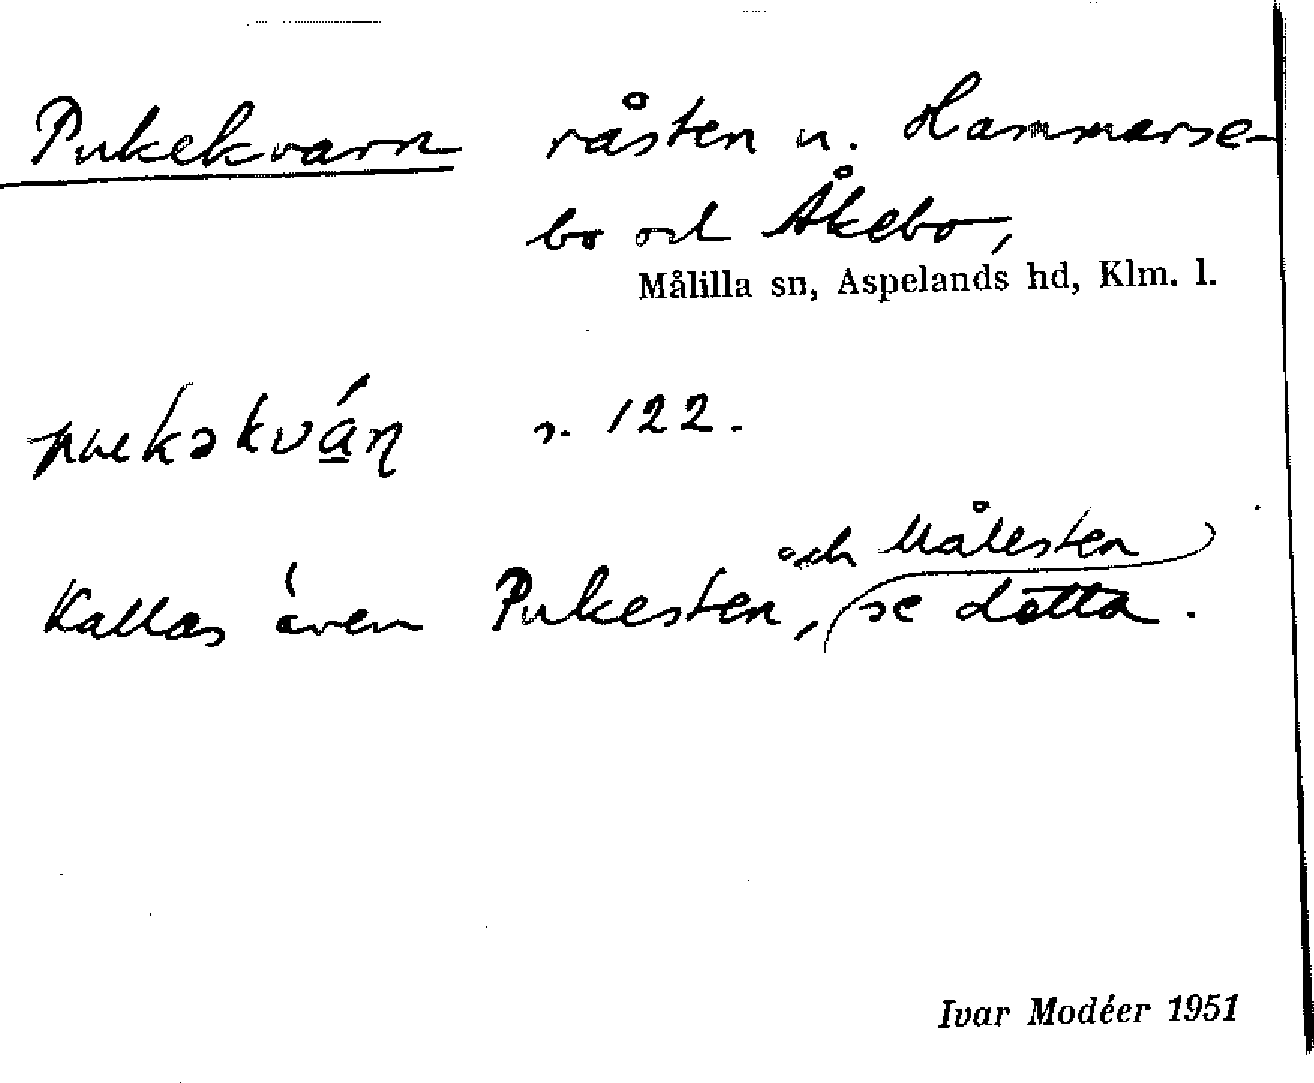 Pukekvarn råsten u. Hammarse-
bo och Åkebo,
Målilla sn, Aspelands hd, Klm. l.
s. 122.
och Målesten
Kallas även Pukesten, se detta.
Ivar Modéer 1951